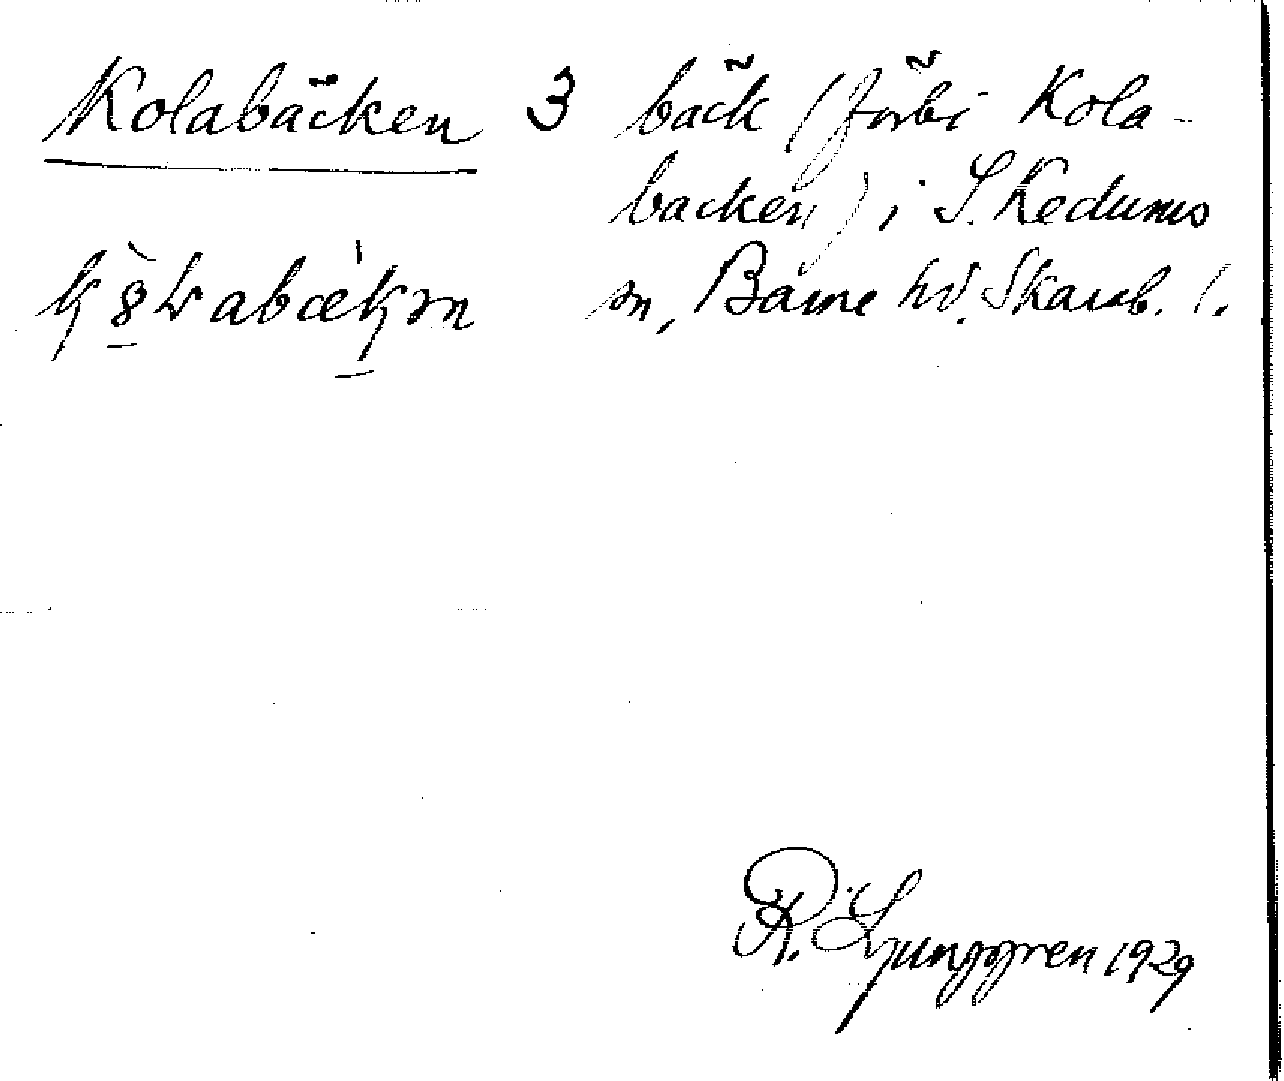 Kolabäcken 3 bäck (förbi Kola-
backen) i S. Kedums
sn, Barne hd. Skarab. l.
R. Ljunggren 1929